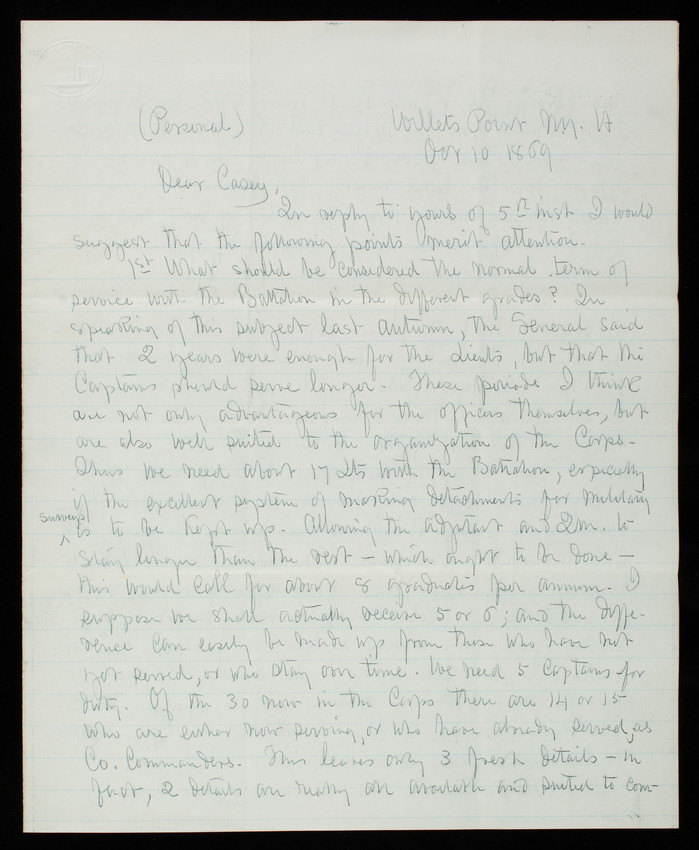 (Personal) Willets Point N.Y. H
Oct 10 1869
Dear Casey,
In reply to yours of 5th inst I would
suggest that the following points merit attention.
1st What should be considered the normal term of
service with the Battalion in the different grades? In
speaking of this subject last autumn, the General said
that 2 years were enough for the Lieuts, but that the
Captains should serve longer. These periods I think
are not only advantageous for the officers themselves, but
are also well suited to the organization of the Corps.
Thus we need about 17 Lts with the Battalion, especially
if the excellent system of making detachments for military
surveys
is to be kept up. Allowing the adjutant and Q.M. to
stay longer than the rest – which ought to be done –
this would call for about 8 graduates per annum. I
suppose we shall actually receive 5 or 6; and the diffe-
rence can easily be made up from those who have not
yet served, or who stay over time. We need 5 Captains for
duty. Of the 30 now in the Corps there are 14 or 15
who are either now serving, or who have already served, as
Co. Commanders. This leaves only 3 fresh details – in
fact, 2 details are really all available and suited to com-